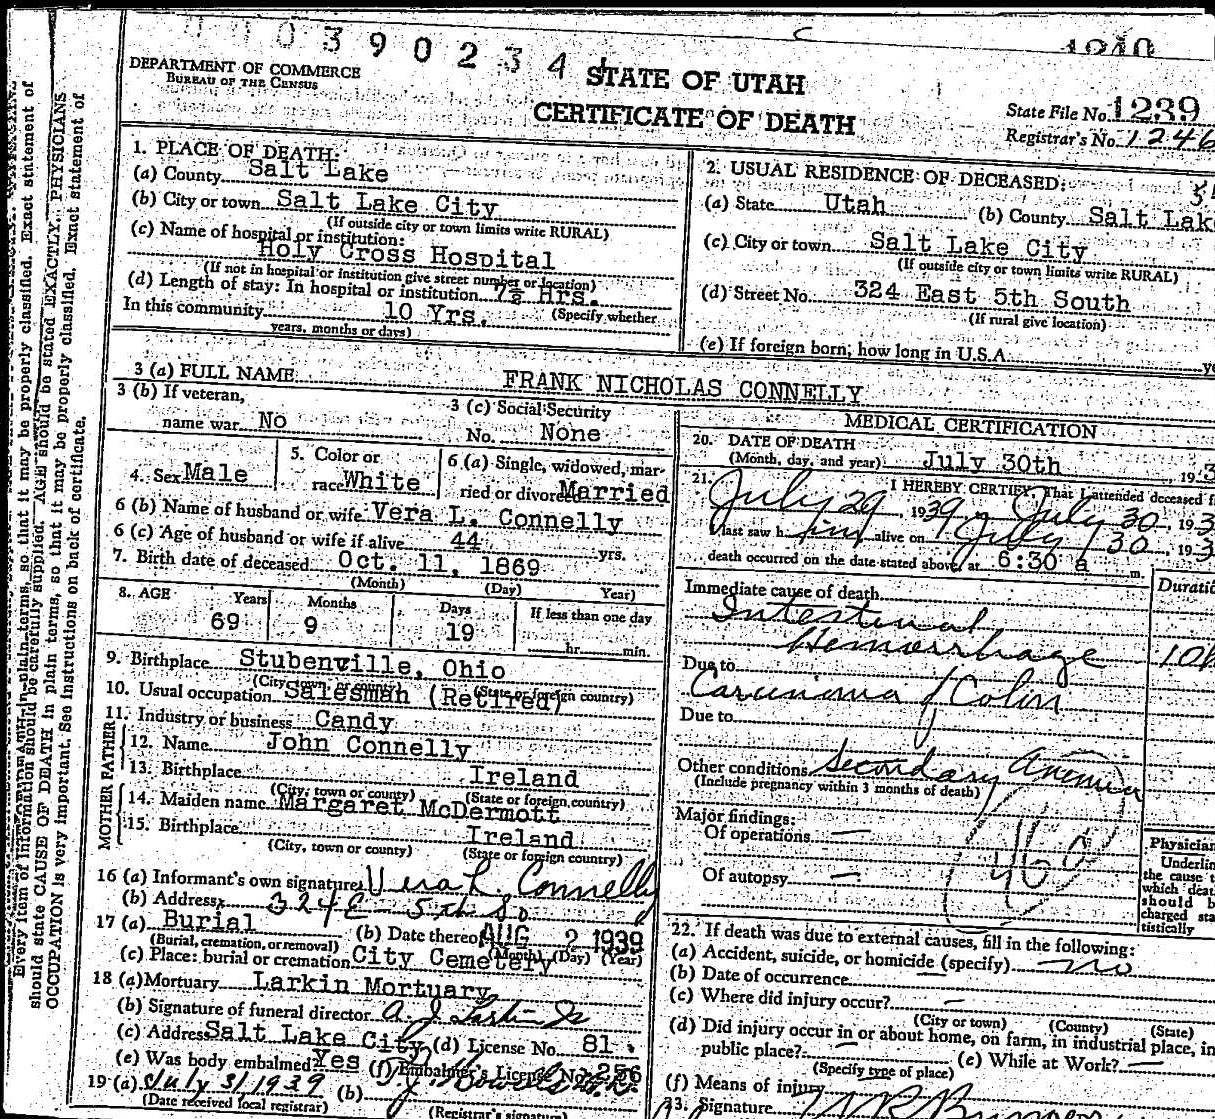 0 3 9 0 2 3 4
1240
DEPARTMENT OF COMMERCE
BUREAU OF THE CENSUS
STATE OF UTAH
CERTIFICATE OF DEATH
State File No. 1239
Registrar's No. 1246
Every item of information should be carefully supplied. AGE should be stated EXACTLY. PHYSICIANS
should state CAUSE OF DEATH in plain terms, so that it may be properly classified. Exact statement of
OCCUPATION is very important. See instructions on back of certificate.
1. PLACE OF DEATH:
(a) County Salt Lake
(b) City or town Salt Lake City
(If outside city or town limits write RURAL)
(c) Name of hospital or institution:
Holy Cross Hospital
(If not in hospital or institution give street number or location)
(d) Length of stay: In hospital or institution 7½ Hrs.
In this community 10 Yrs. (Specify whether
years, months or days)
2. USUAL RESIDENCE OF DECEASED:
(a) State Utah (b) County Salt Lak
(c) City or town Salt Lake City
(If outside city or town limits write RURAL)
(d) Street No. 324 East 5th South
(If rural give location)
(e) If foreign born, how long in U.S.A.
3 (a) FULL NAME FRANK NICHOLAS CONNELLY
3 (b) If veteran,
name war No
3 (c) Social Security
No. None
4. Sex Male
5. Color or
race White
6 (a) Single, widowed, mar-
ried or divorced Married
6 (b) Name of husband or wife Vera L. Connelly
6 (c) Age of husband or wife if alive 44 yrs.
7. Birth date of deceased Oct. 11, 1869
(Month) (Day) Year)
8. AGE Years Months Days If less than one day
69 9 19 hr. min.
9. Birthplace Stubenville, Ohio
(City, town or county) (State or foreign country)
10. Usual occupation Salesman (Retired)
11. Industry or business Candy
FATHER
12. Name John Connelly
13. Birthplace Ireland
(City, town or county) (State or foreign country)
MOTHER
14. Maiden name Margaret McDermott
15. Birthplace Ireland
(City, town or county) (State or foreign country)
16 (a) Informant's own signature Vera L. Connelly
(b) Address 324 E 5th So
17 (a) Burial (b) Date thereof AUG 2 1939
(Burial, cremation, or removal) (Month) (Day) (Year)
(c) Place: burial or cremation City Cemetery
18 (a) Mortuary Larkin Mortuary
(b) Signature of funeral director A. J. Larkin Jr
(c) Address Salt Lake City (d) License No. 81
(e) Was body embalmed? Yes (f) Embalmer's License No. 256
19 (a) July 31, 1939 (b)
(Date received local registrar) (Registrar's signature)
MEDICAL CERTIFICATION
20. DATE OF DEATH
(Month, day, and year) July 30th, 193
21. I HEREBY CERTIFY, That I attended deceased f
July 29, 1939, July 30, 193
I last saw him alive on July 30, 193
death occurred on the date stated above, at 6:30 a m.
Immediate cause of death Duratio
Intestinal
Hemorrhage 10h
Due to
Carcinoma of Colon
Due to
Other conditions Secondary Anemia
(Include pregnancy within 3 months of death)
Major findings:
Of operations —
Of autopsy —
46 c
Physician
Underlin
the cause t
which deat
should b
charged sta
tistically
22. If death was due to external causes, fill in the following:
(a) Accident, suicide, or homicide (specify) no
(b) Date of occurrence —
(c) Where did injury occur? —
(City or town) (County) (State)
(d) Did injury occur in or about home, on farm, in industrial place, in
public place? — (e) While at Work? —
(Specify type of place)
(f) Means of injury
23. Signature